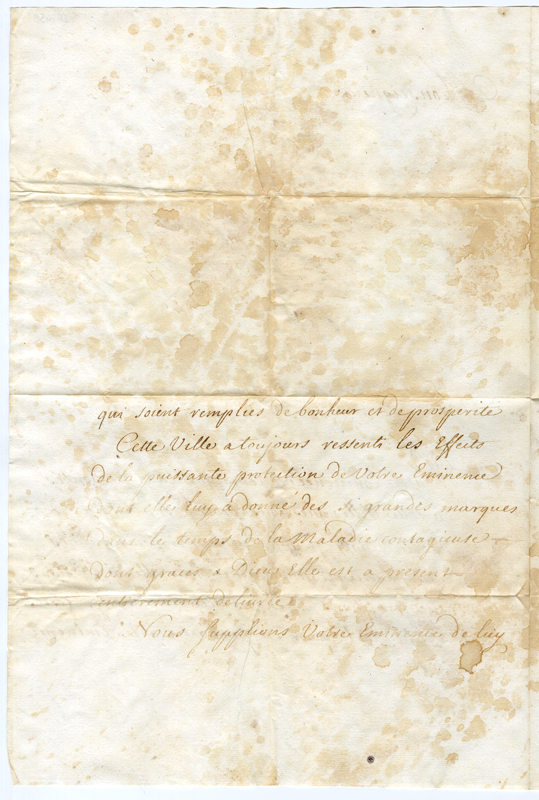 qui soient remplies de bonheur et de prosperité
Cette Ville a toujours ressenti les Effects
de la puissante protection de Votre Eminence
dont elle luy a donné des si grandes marques
dans le temps de la Maladie contagieuse
dont graces a Dieu Elle est a present
entierement delivrée
Nous supplions Votre Eminence de luy